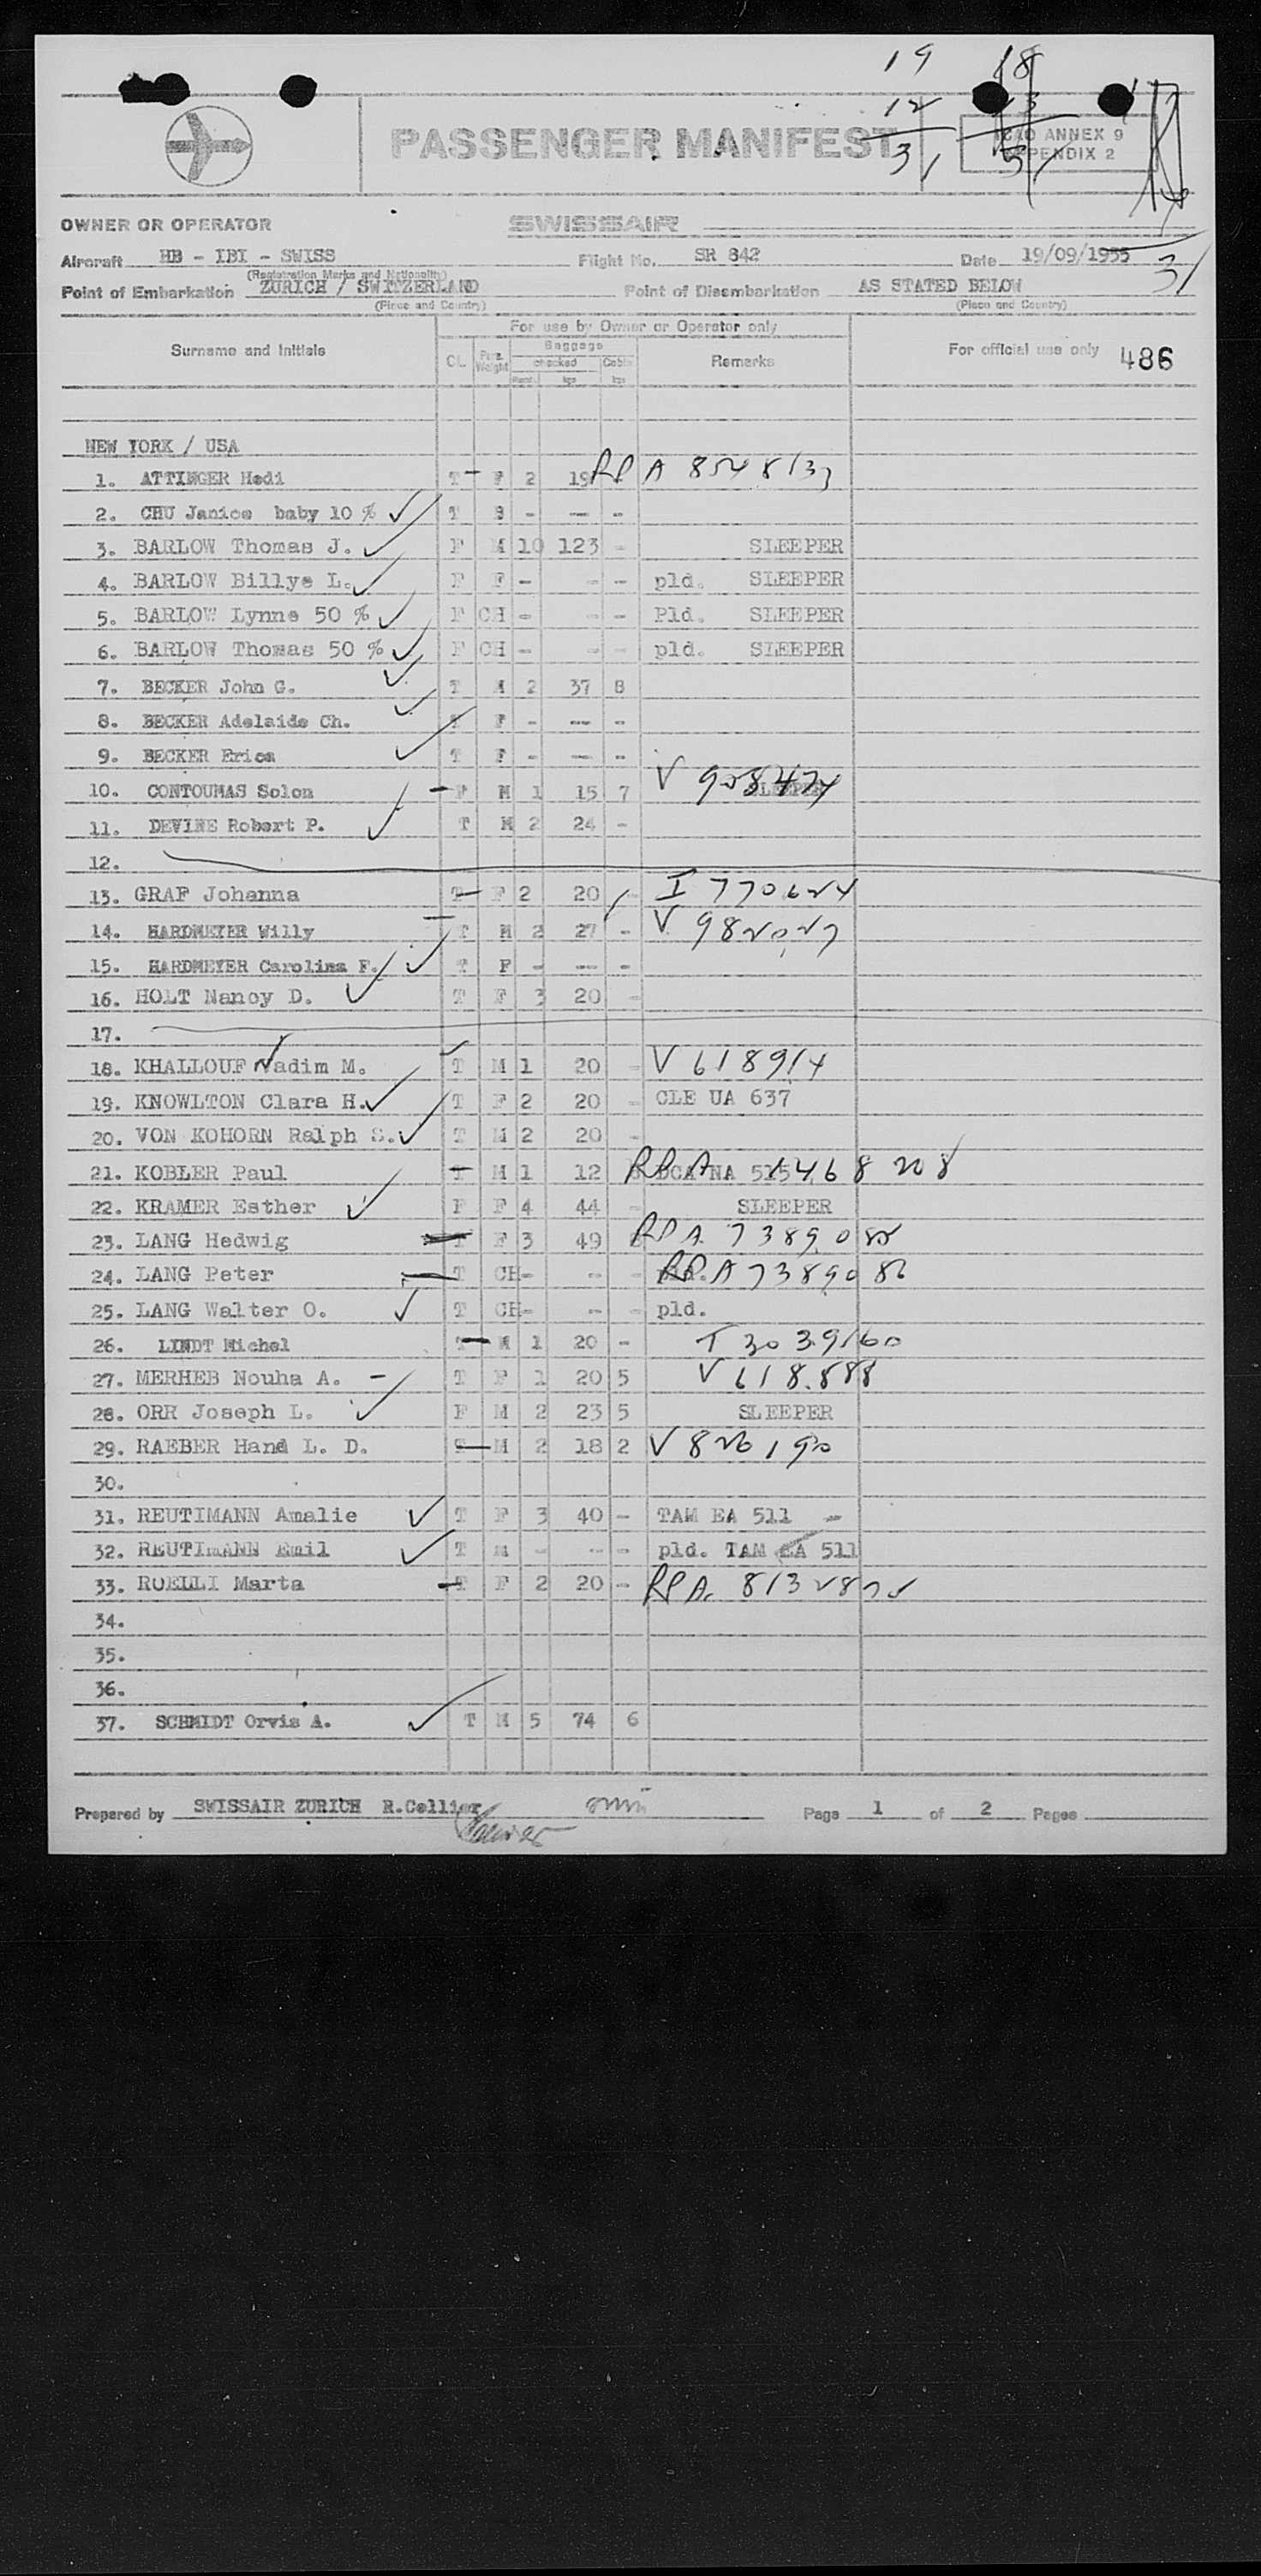 19 18
12 13
31 31
PASSENGER MANIFEST
ICAO ANNEX 9
APPENDIX 2
OWNER OR OPERATOR SWISSAIR
Aircraft HB - IBI - SWISS Flight No. SR 842 Date 19/09/1955
(Registration Marks and Nationality)
31
Point of Embarkation ZURICH / SWITZERLAND Point of Disembarkation AS STATED BELOW
(Place and Country) (Place and Country)
For use by Owner or Operator only
Surname and Initials CL. Pass. Weight Baggage checked Cabin kgs kgs Remarks For official use only 486
NEW YORK / USA
1. ATTINGER Hedi T F 2 19 RP A 8548133
2. CHU Janice baby 10 % T B - -- -
3. BARLOW Thomas J. F M 10 123 - SLEEPER
4. BARLOW Billye L. F F - - - pld. SLEEPER
5. BARLOW Lynne 50 % F CH - - - Pld. SLEEPER
6. BARLOW Thomas 50 % F CH - - - pld. SLEEPER
7. BECKER John G. T M 2 37 8
8. BECKER Adelaide Ch. T F - -- -
9. BECKER Erica T F - -- -
10. CONTOUMAS Solon F M 1 15 7 SLEEPER V 908474
11. DEVINE Robert P. T M 2 24 -
12.
13. GRAF Johanna T F 2 20 - I 770624
14. HARDMEYER Willy T M 2 27 - V 982027
15. HARDMEYER Carolina F. T F - -- -
16. HOLT Nancy D. T F 3 20 -
17.
18. KHALLOUF Nadim M. T M 1 20 - V 618914
19. KNOWLTON Clara H. T F 2 20 - CLE UA 637
20. VON KOHORN Ralph S. T M 2 20 -
21. KOBLER Paul T M 1 12 DCA NA 515 RPA 1468208
22. KRAMER Esther F F 4 44 - SLEEPER
23. LANG Hedwig T F 3 49 RPA 7389085
24. LANG Peter T CH - -- - pld. RPA 7389086
25. LANG Walter O. T CH - -- - pld.
26. LINDT Michel T M 1 20 - T 3039160
27. MERHEB Nouha A. T F 1 20 5 V 618.888
28. ORR Joseph L. F M 2 23 5 SLEEPER
29. RAEBER Hand L. D. T M 2 18 2 V 826190
30.
31. REUTIMANN Amalie T F 3 40 - TAM EA 511
32. REUTIMANN Emil T M - -- - pld. TAM EA 511
33. RUELLI Marta T F 2 20 - RPA. 8132875
34.
35.
36.
37. SCHMIDT Orvis A. T M 5 74 6
Prepared by SWISSAIR ZURICH R.Cellier Page 1 of 2 Pages